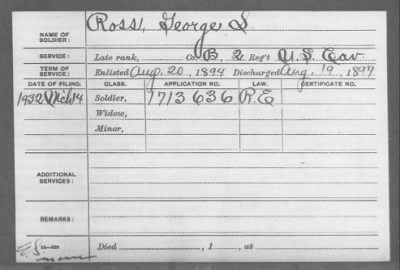 NAME OF SOLDIER: Ross, George S.
SERVICE: Late rank, Co B, 2 Reg't U.S. Cav
TERM OF SERVICE: Enlisted Aug. 20, 1894 Discharged Aug. 19, 1897
DATE OF FILING. CLASS. APPLICATION NO. LAW. CERTIFICATE NO.
1932 Mch 14 Soldier, 1713636 R.E
Widow,
Minor,
ADDITIONAL SERVICES:
REMARKS:
Died , 1 , at